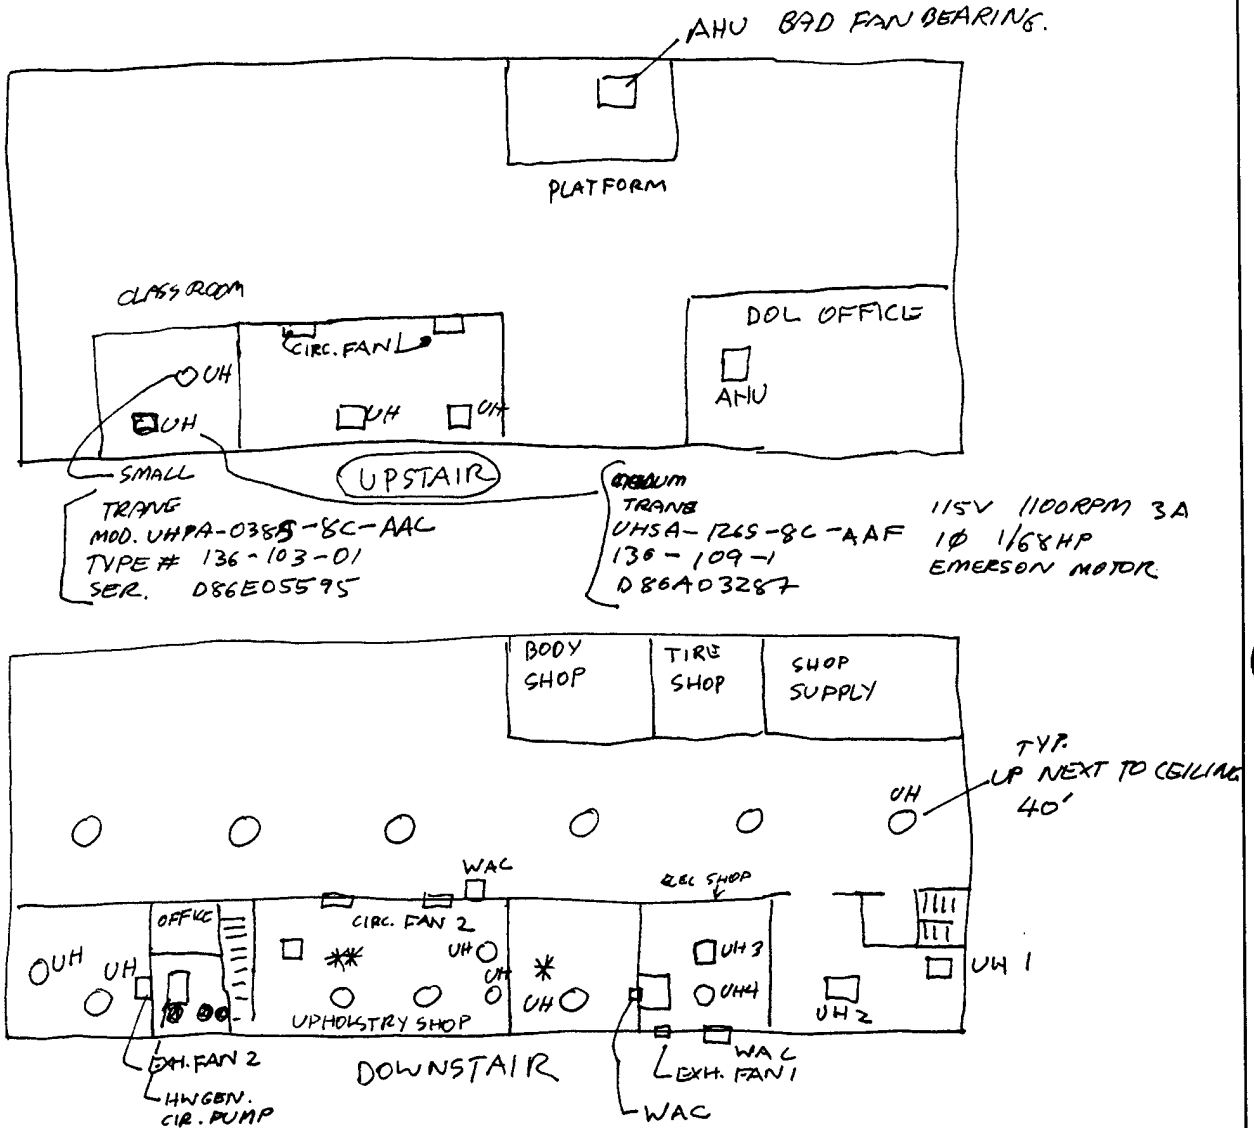 AHU BAD FAN BEARING.
PLATFORM
CLASSROOM
DOL OFFICE
CIRC. FAN
UH
AHU
UH
UH
UH
UPSTAIR
SMALL
TRANE
MOD. UHPA-038S-8C-AAC
TYPE # 136-103-01
SER. D86E05595
MEDIUM
TRANE
UHSA-126S-8C-AAF
136-109-1
D86A03287
115V 1100RPM 3A
1Ø 1/68HP
EMERSON MOTOR
BODY
SHOP
TIRE
SHOP
SHOP
SUPPLY
TYP.
UP NEXT TO CEILING
40'
UH
WAC
ELEC SHOP
OFFICE
CIRC. FAN 2
UH
UH
**
UH
UH
*
UH
UH3
UH4
UH 1
UH2
UPHOLSTRY SHOP
EXH. FAN 2
HWGEN.
CIR. PUMP
DOWNSTAIR
WAC
EXH. FAN 1
WAC